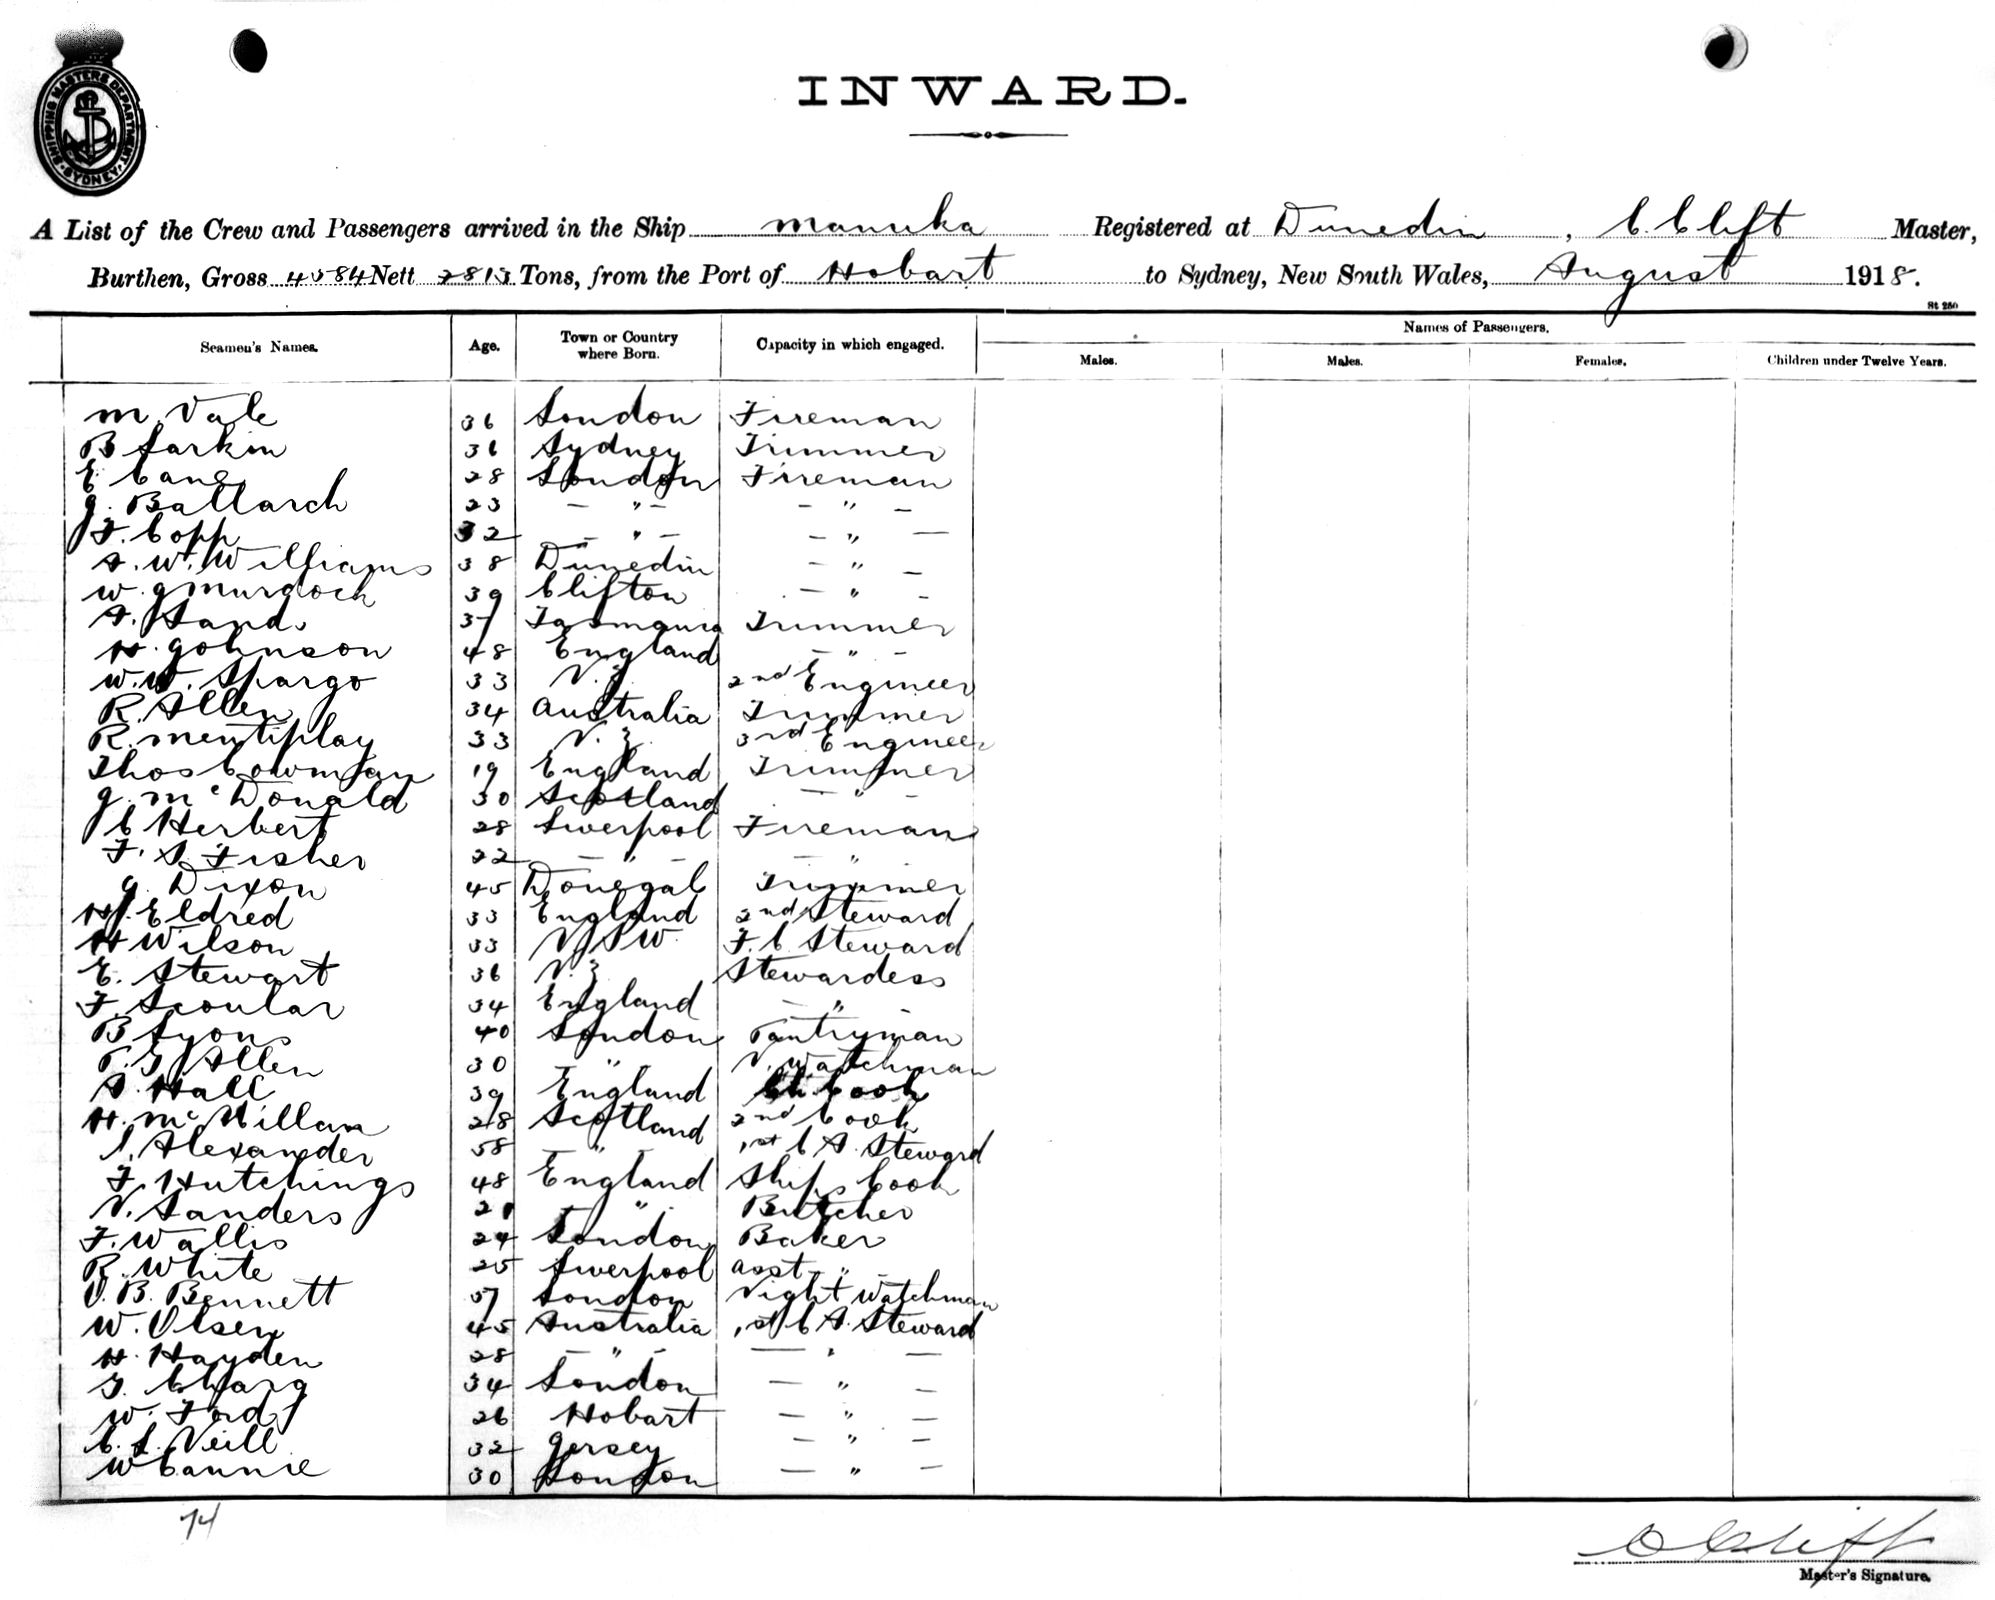 SHIPPING MASTERS DEPARTMENT
SYDNEY
INWARD.
A List of the Crew and Passengers arrived in the Ship Manuka Registered at Dunedin, C. Clift Master,
Burthen, Gross 4584 Nett 2813 Tons, from the Port of Hobart to Sydney, New South Wales, August 1918.
St 250
Names of Passengers.
Seamen's Names. Age. Town or Country where Born. Capacity in which engaged. Males. Males. Females. Children under Twelve Years.
M. Vale 36 London Fireman
B Larkin 36 Sydney Trimmer
E. Cane 28 London Fireman
J. Ballarch 23 - " - - " -
F. Copp 32 - " - - " -
A. W. Williams 38 Dunedin - " -
W. J Murdock 39 Clifton - " -
A. Hand 37 Tasmania Trimmer
H. Johnson 48 England - " -
W. W. Spargo 33 N.Z. 2nd Engineer
R. Allen 34 Australia Trimmer
R. Mentiplay 33 N.Z. 3rd Engineer
Thos Cowman 19 England Trimmer
J. McDonald 30 Scotland - " -
C Herbert 28 Liverpool Fireman
F. S. Fisher 22 - " - - " -
J. Dixon 45 Donegal Trimmer
H. Eldred 33 England 2nd Steward
H Wilson 33 N.S.W. F. C. Steward
E. Stewart 36 N.Z. Stewardess
F. Scoular 34 England - "
B Lyons 40 London Pantryman
P. G Allen 30 " N. Watchman
A. Hall 39 England Ch. Cook
H. McMillan 28 Scotland 2nd Cook
Alexander 58 " 1st C A. Steward
F. Hutchings 48 England Ships Cook
N. Sanders " Butcher
F. Wallis 24 London Baker
R. White 25 Liverpool Asst. "
V. B. Bennett 57 London Night Watchman
W. Olsen 45 Australia 1st C A. Steward
H. Hayden 28 - " - - " -
34 London - " -
W. Ford 26 Hobart - " -
C. L. Neill 32 Jersey - " -
W Cannie 30 London - " -
74
C Clift
Master's Signature.